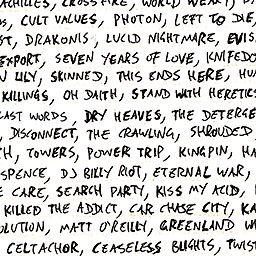 ACHILLES, CROSSFIRE, WORLD WEARY,
CULT VALUES, PHOTON, LEFT TO DIE,
DRAKONIS, LUCID NIGHTMARE,
EXPORT, SEVEN YEARS OF LOVE,
LILY, SKINNED, THIS ENDS HERE,
KILLINGS, OH DAITH, STAND WITH HERETICS
LAST WORDS, DRY HEAVES, THE DETERGE
DISCONNECT, THE CRAWLING, SHROUDED
TH, TOWERS, POWER TRIP, KINGPIN, HA
SPENCE, DJ BILLY RIOT, ETERNAL WAR,
E CARE, SEARCH PARTY, KISS MY ACID,
KILLED THE ADDICT, CAR CHASE CITY, KA
OLUTION, MATT O'REILLY, GREENLAND W
CELTACHOR, CEASELESS BLIGHTS, TWIST